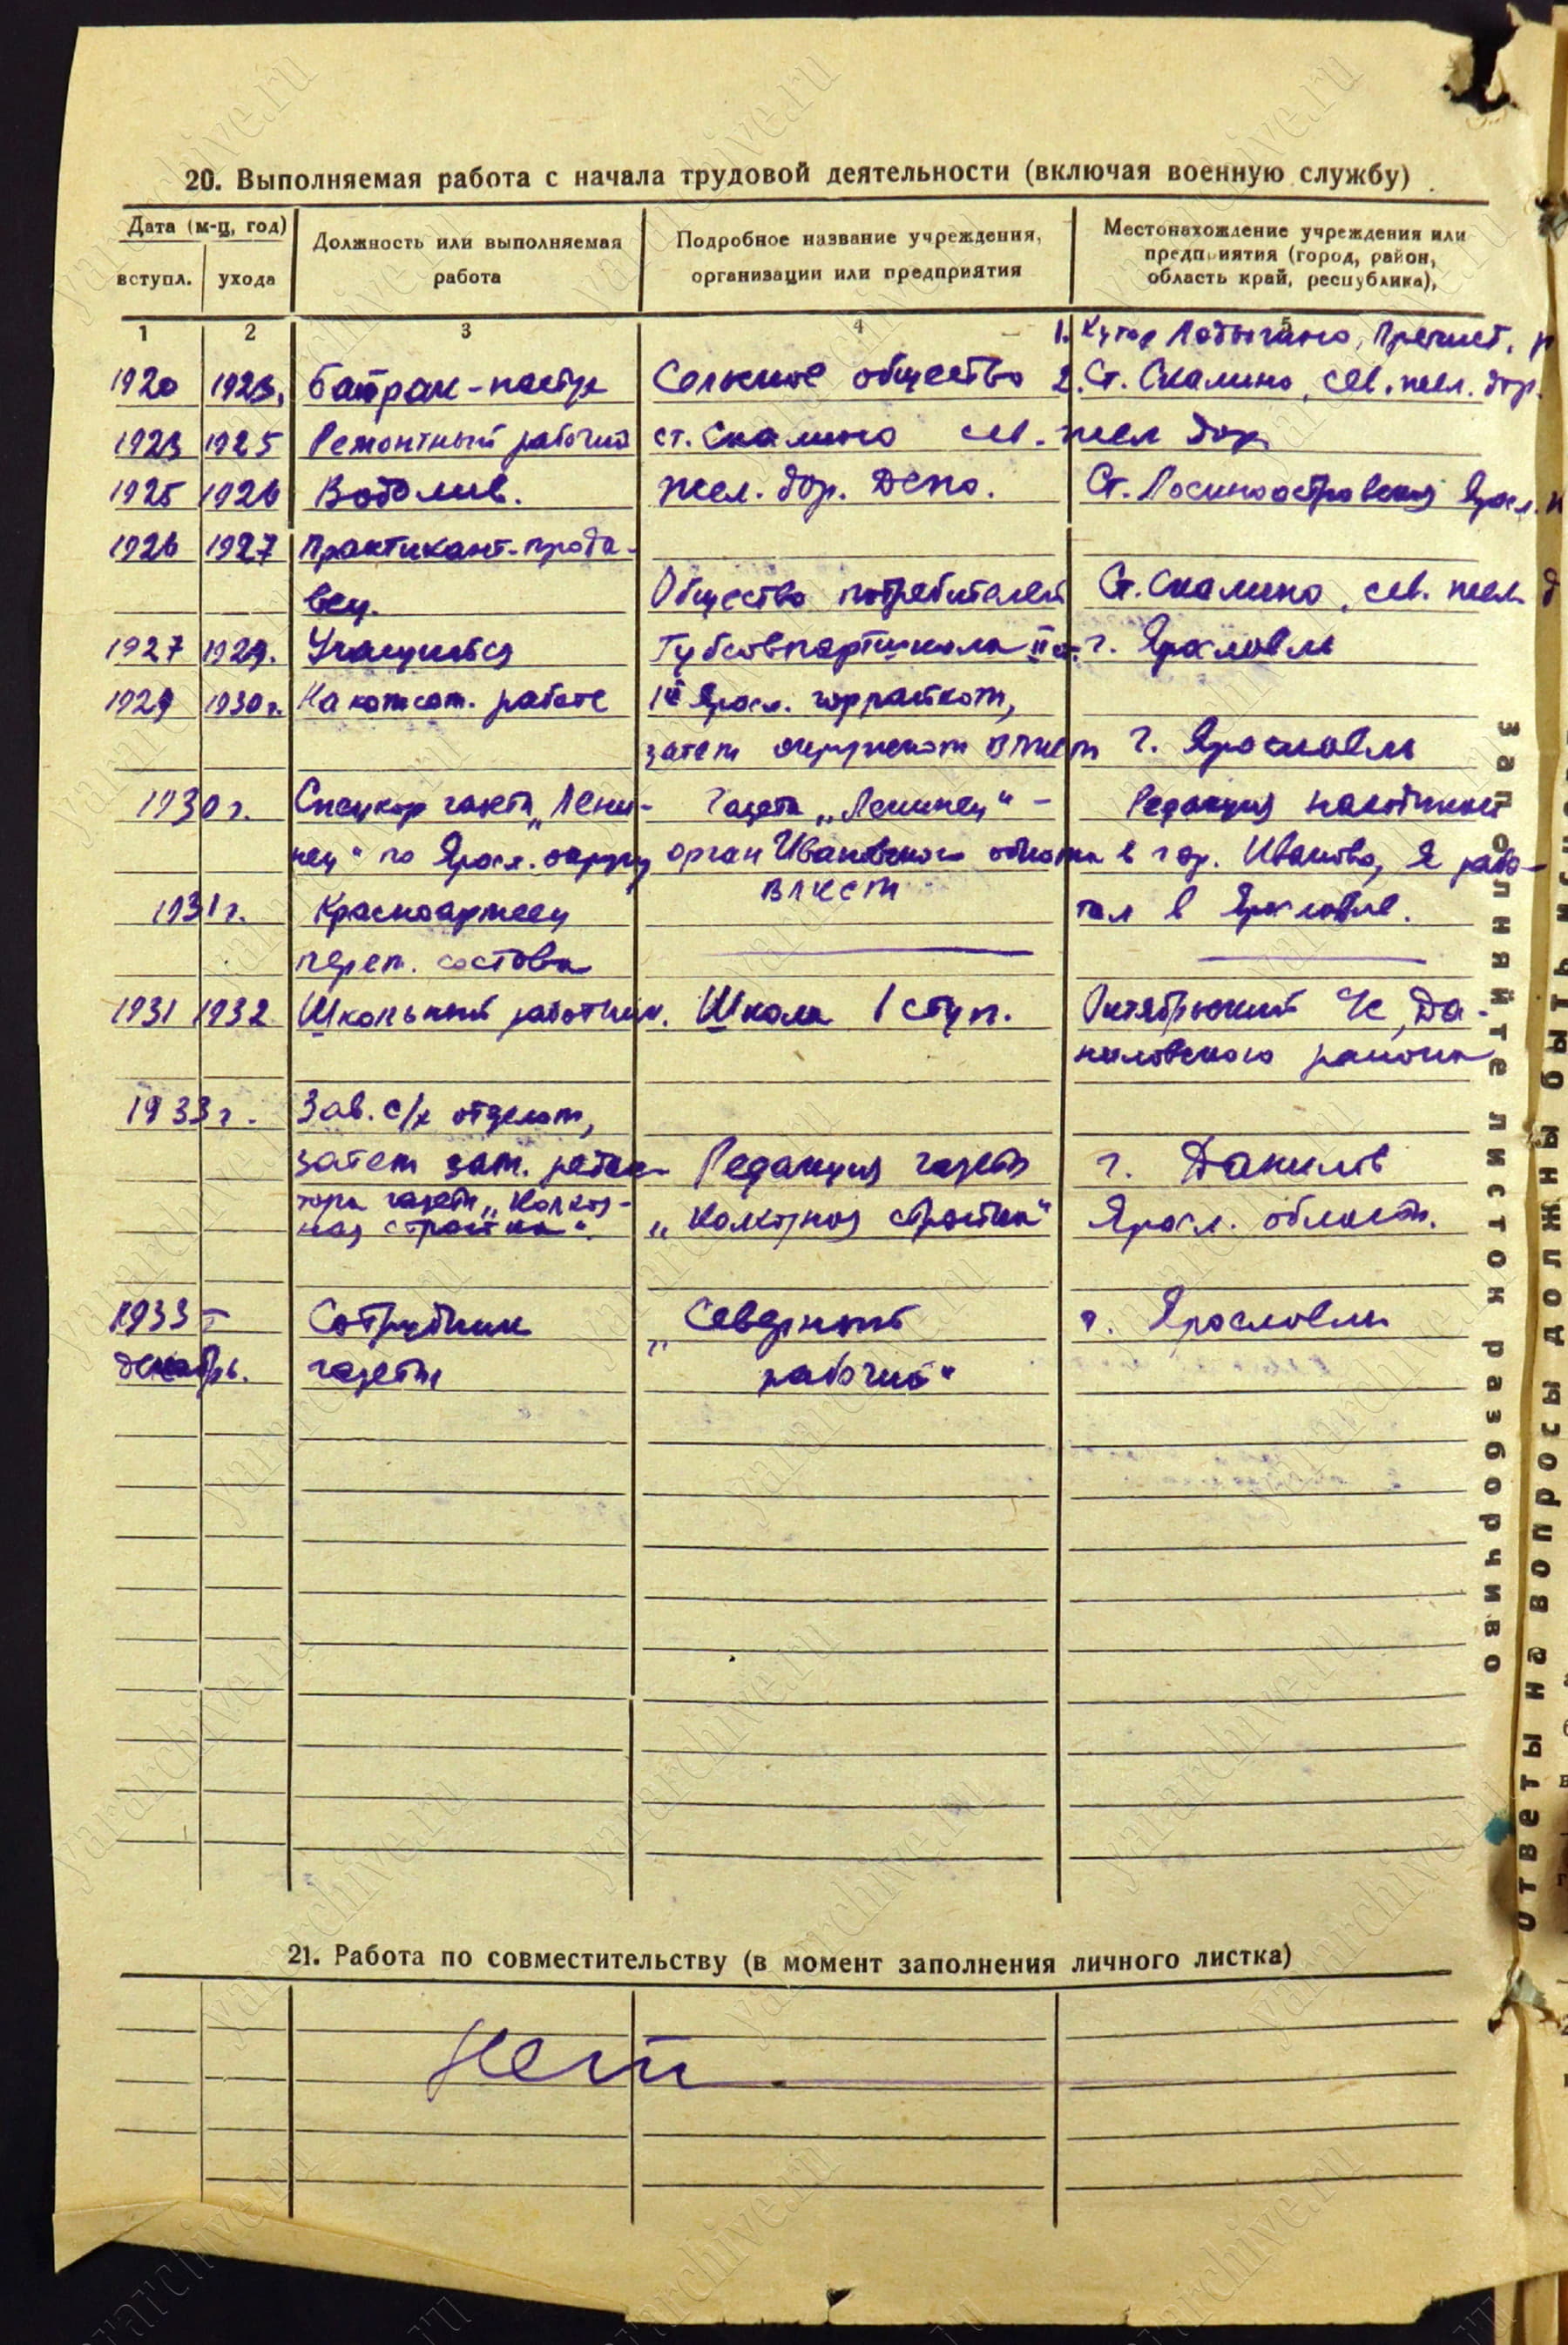 20. Выполняемая работа с начала трудовой деятельности (включая военную службу)
Дата (м-ц, год)
вступл. ухода
Должность или выполняемая
работа
Подробное название учреждения,
организации или предприятия
Местонахождение учреждения или
предприятия (город, район,
область край, республика),
1 2 3 4 5
1. Хутор Лодыгино, Пречист. р
1920 1923, батрак-пастух Сельское общество 2. Ст. Скалино, сев. жел. дор.
1923 1925 Ремонтный рабочий ст. Скалино сев. жел дор
1925 1926 Водолив. жел. дор. Депо. Ст. Лосиноостровская Яросл.
1926 1927 Практикант-прода-
вец. Общество потребителей Ст. Скалино, сев. жел. д
1927 1929. Учащийся Губсовпартшкола II ст. г. Ярославль
1929 1930 г. На комсом. работе Яросл. горрайком,
затем окружком ВЛКСМ г. Ярославль
1930 г. Спецкор газеты „Лени- Газета „Ленинец“ - Редакция находится
нец“ по Яросл. округу орган Ивановского обкома в гор. Иваново, Я рабо-
ВЛКСМ
1931 г. Красноармеец тал в Ярославле.
перем. состава
1931 1932 Школьный работник. Школа I ступ. Октябрьский с/с, Да-
ниловского района
1933 г. Зав. с/х отделом,
затем зам. редак- Редакция газеты г. Данилов
тора газеты „Колхоз-
ная стройка“. „Колхозная стройка“ Яросл. области.
1933 г Сотрудник „Северный г. Ярославль
декабрь. газеты рабочий“
21. Работа по совместительству (в момент заполнения личного листка)
Нет
заполняйте листок разборчиво
Ответы на вопросы должны быть
yararchive.ru